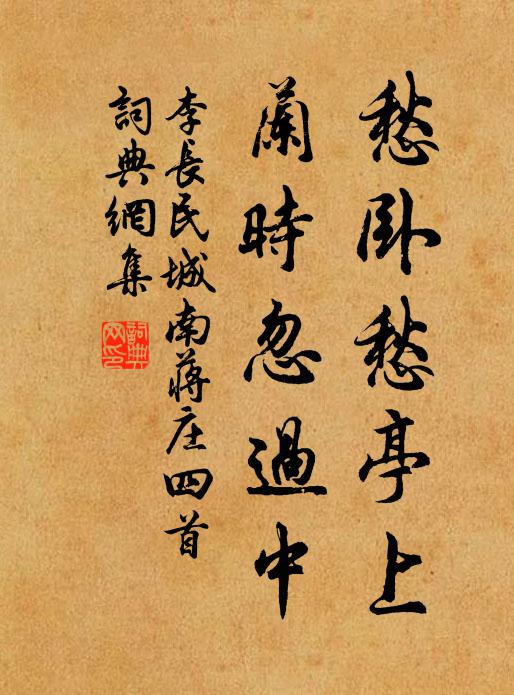 愁卧愁亭上
蘭時忽過中
李長民城南蔣庄四首
詞典網集
詞典網印